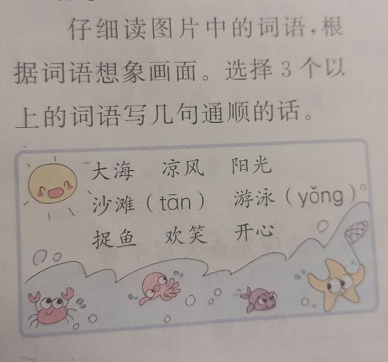 仔细读图片中的词语,根
据词语想象画面。选择 3 个以
上的词语写几句通顺的话。
大海 凉风 阳光
沙滩(tān) 游泳(yǒng)
捉鱼 欢笑 开心